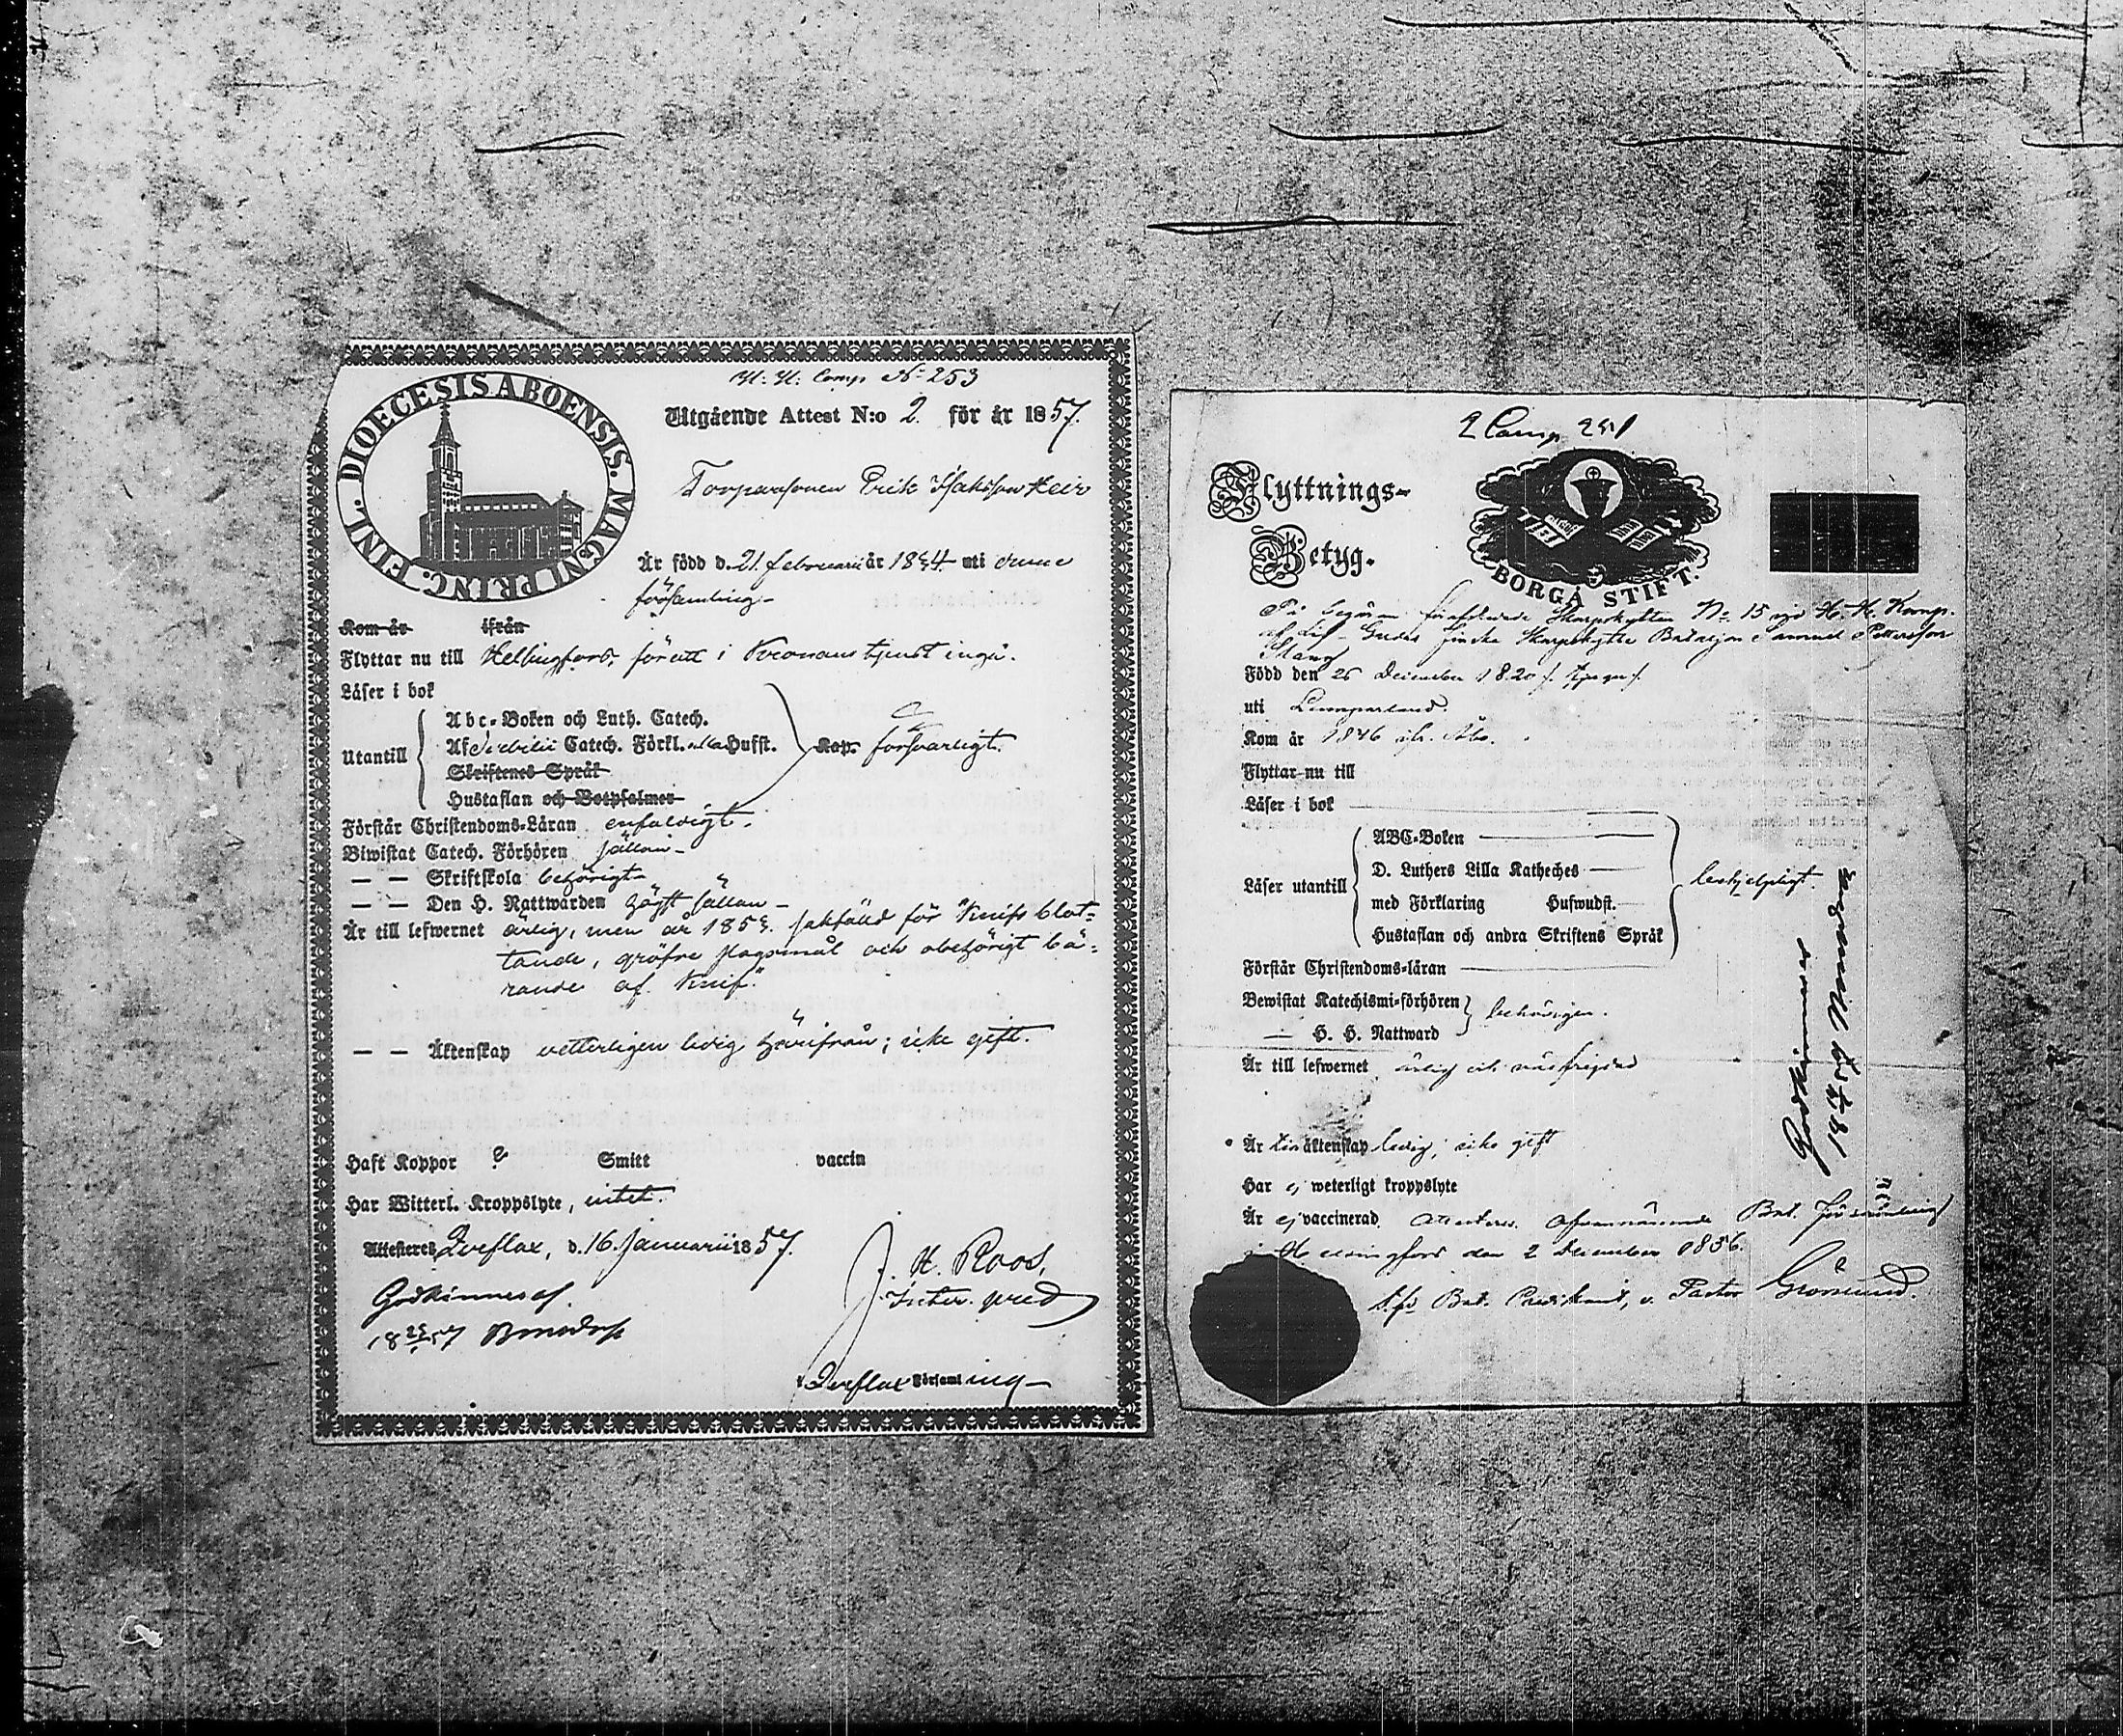 H: H: Comp N: 253
DIOECESIS ABOENSIS. MAGNI PRINC. FINL.
Utgående Attest N:o 2. för år 1857.
Torparsonen Erik Isaksson Heir
Är född d. 21. februarii år 1834 uti denne
församling-
Kom år ifrån
Flyttar nu till Helsingfors, för att i Kronans tjenst ingå.
Läser i bok
Utantill
Abc-Boken och Luth. Catech.
Af Svebilii Catech. Förkl. alla Hufst.
Skriftenes Språk
Hustaflan och Botpsalmer
Kap. försvarligt.
Förstår Christendoms-Läran enfaldigt.
Biwistat Catech. Förhören sällan-
— — Skriftskola behörigt-
— — Den H. Nattwarden högst sällan-
Är till lefwernet ärlig, men år 1853. sakfälld för "Knifs blot-
tande, gröfre slagsmål och obehörigt bä-
rande af Knif."
— — Äktenskap vetterligen ledig härifrån; icke gift.
Haft Koppor ? Smitt vaccin
Har Witterl. Kroppslyte, intet.
Attesteras Qveflax, d. 16. Januarii 1857.
J. H. Roos,
Godkännes af
18 57
Qveflax Församling-
2 Comp 251
Flyttnings-
Betyg.
BORGÅ STIFT.
På begäran Skarpskytten No 15 vid H. H. Komp.
af Lif-Gardes finska Skarpskytte Bataljon Samuel Pettersson
Stang
Född den 26 December 1820
uti Lumparland.
Kom år 1846 ifr. Åbo.
Flyttar nu till
Läser i bok
Läser utantill
ABC-Boken
D. Luthers Lilla Katheches
med Förklaring Hufwudst.
Hustaflan och andra Skriftens Språk
beskjelpligt.
Förstår Christendoms-läran
Bewistat Katechismi-förhören
— H. H. Nattward
behörigen.
Är till lefwernet ärlig och
Är till äktenskap ledig, icke gift
Har ej weterligt kroppslyte
Är ej vaccinerad. attesteras. Bat. församling
Helsingfors den 2 December 1856.
Bat. Predikant, v. Pastor Grönlund.
Godkännes